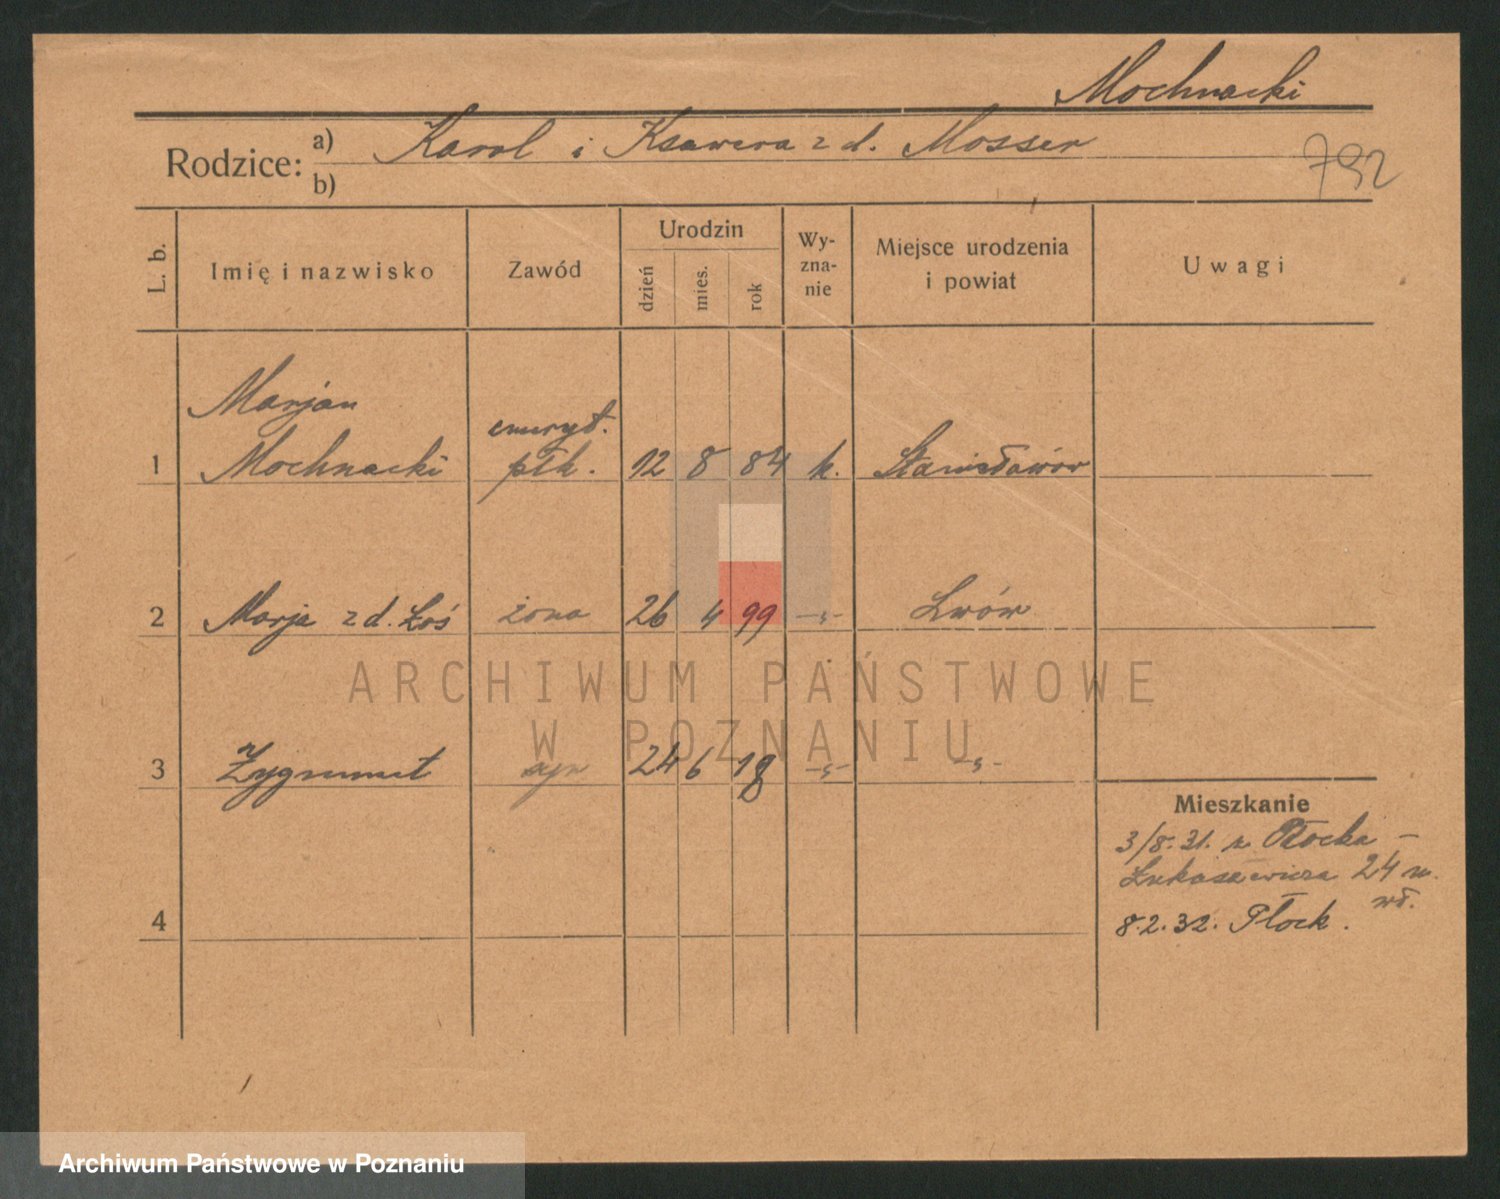 Mochnacki
Rodzice: a) Karol i Ksawera z d. Mosser
b)
792
L. b.
Imię i nazwisko
Zawód
Urodzin
dzień
mies.
rok
Wy-
zna-
nie
Miejsce urodzenia
i powiat
Uwagi
Marjan
emeryt.
1 Mochnacki płk. 12 8 84 k. Stanisławów
2 Marja z d. Łoś żona 26 4 99 -„- Lwów
ARCHIWUM PAŃSTWOWE
W POZNANIU
3 Zygmunt syn 24 6 18 -„- -„-
4
Mieszkanie
3/8.31. z Płocka –
Łukaszewicza 24 m.
wł.
8.2.32. Płock.
Archiwum Państwowe w Poznaniu